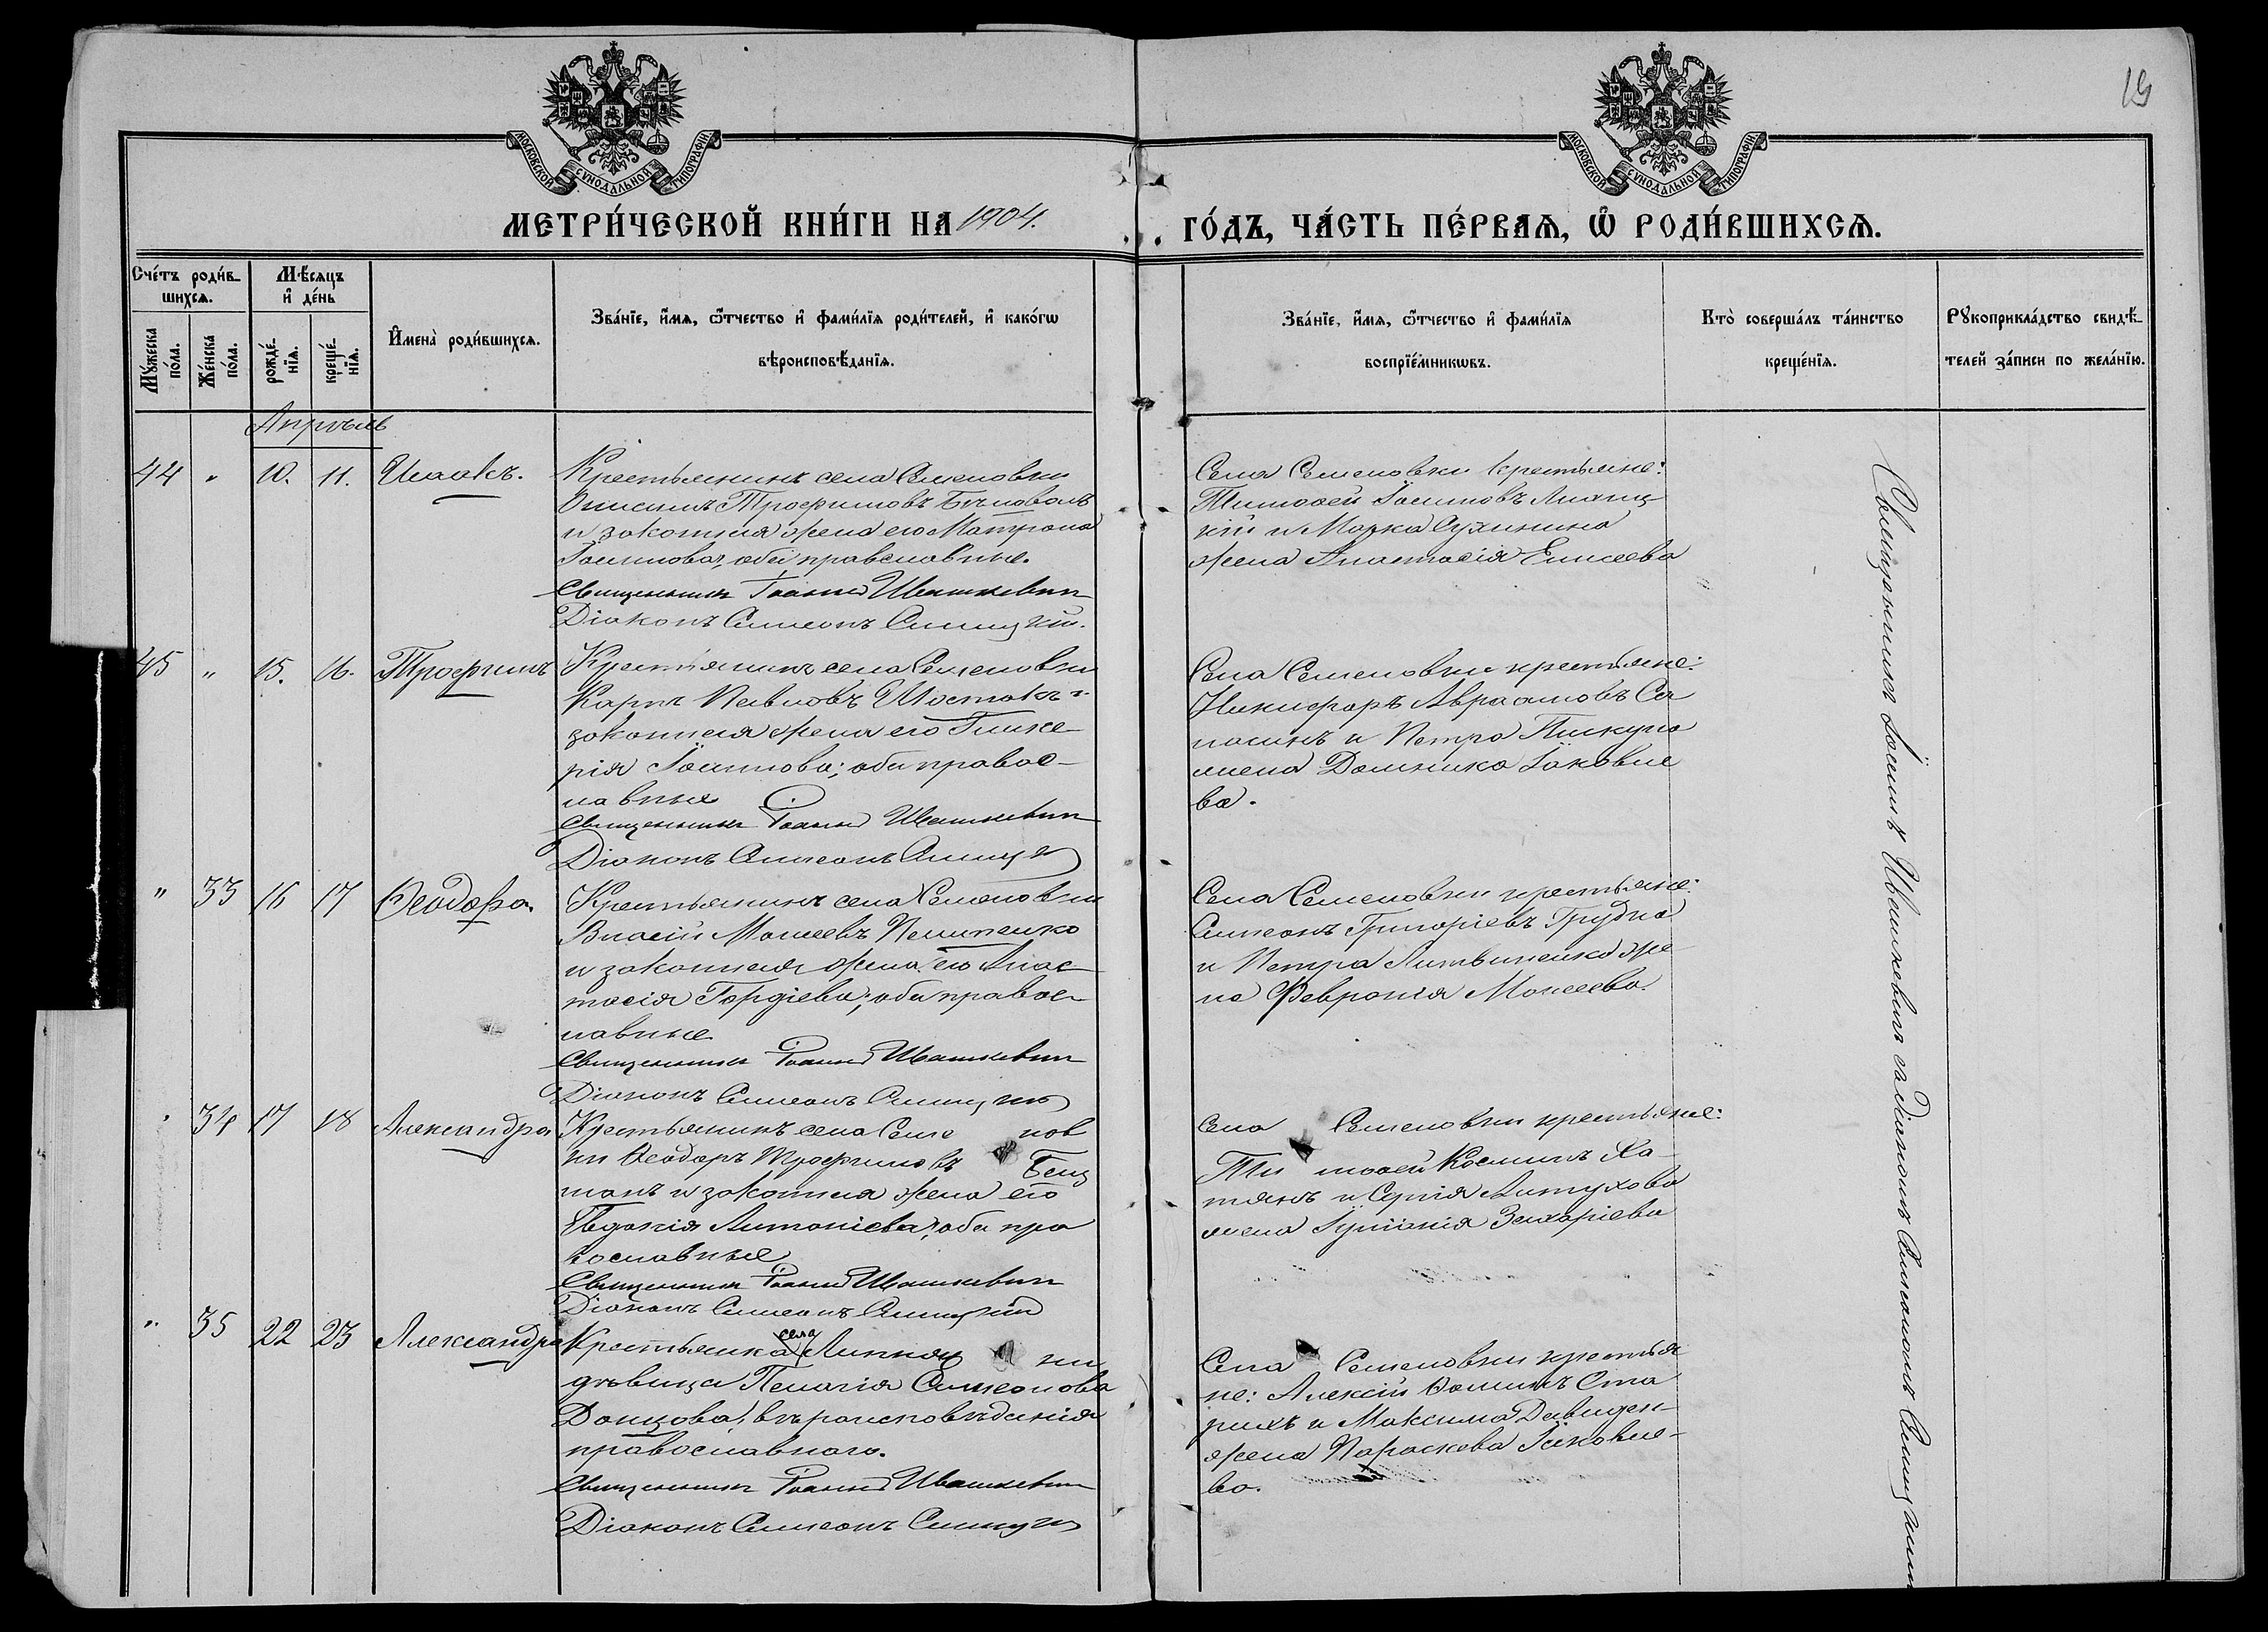 19
МОСКОВСКОЙ СѴНОДАЛЬНОЙ ТИПОГРАФІИ
МОСКОВСКОЙ СѴНОДАЛЬНОЙ ТИПОГРАФІИ
МЕТРИ́ЧЕСКОЙ КНИ́ГИ НА 1904.
ГО́ДЪ, ЧА́СТЬ ПЕ́РВАѦ, Ѽ РОДИ́ВШИХСѦ.
Сче́тъ роди́в-
шихсѧ.
Мꙋ́жеска по́ла.
Же́нска по́ла.
Мѣ́сѧцъ
и҆ де́нь
рожде́-
нїѧ.
креще́-
нїѧ.
И҆мена̀ роди́вшихсѧ.
Зва́нїе, и҆́мѧ, ѻ҆́тчество и҆ фами́лїѧ роди́телей, и҆ како́гѡ
вѣроисповѣ́данїѧ.
Зва́нїе, и҆́мѧ, ѻ҆́тчество и҆ фами́лїѧ
воспрїе́мникѡвъ.
Кто̀ соверша́лъ та́инство
креще́нїѧ.
Рꙋкоприкла́дство свидѣ́-
телей за́писи по жела́нїю.
Апрѣль
44 " 10. 11. Исаакъ.
Крестьянинъ села Семеновки
Онисимъ Трофимовъ Бѣловолъ
и законная жена его Матрона
Іоаннова, оба православные.
Священникъ Іоаннъ Ивашкевич
Діаконъ Симеонъ Синицкій.
Села Семеновки крестьяне:
Тимофей Іоанновъ Лиащ
кій и Марка Сухинина
жена Анастасія Елисеева
45 " 15. 16. Трофимъ
Крестьянинъ села Семеновки
Карпъ Павловъ Шостакъ и
законная жена его Глике-
рія Іоаннова; оба правос-
лавные
Священникъ Іоаннъ Ивашкевич
Діаконъ Симеонъ Синицк
Села Семеновки крестьяне:
Никифоръ Авраамовъ Са
посинъ и Петра Пискуна
жена Домника Іаковле
ва.
" 33 16 17 Ѳеодора.
Крестьянинъ села Семеновки
Власій Моисеевъ Пелипенко
и законная жена его Анас-
тасія Гордіева; оба правос-
лавные
Священникъ Іоаннъ Ивашкевич
Діаконъ Симеонъ Синицкій
Села Семеновки крестьяне:
Симеонъ Григоріевъ Грудна
и Петра Литвиненко же-
на Февронія Моисеева.
" 34 17 18 Александра
Крестьянинъ села Семе нов
ки Ѳеодоръ Трофимовъ Безш
танъ и законная жена его
Евдокія Антоніева, оба пра
вославные
Священникъ Іоаннъ Ивашкевич
Діаконъ Симеонъ Синицкій
Села Семеновки крестьяне:
Ти мофей Космичъ Ха-
тянъ и Сергія Литухова
жена Іуліанія Захаріева
" 35 22 23 Александра
села
Крестьянка Липняж ки
дѣвица Пелагія Симеонова
Донцова, вѣроисповѣданія
православнаго.
Священникъ Іоаннъ Ивашкевич
Діаконъ Симеонъ Синицк
Села Семеновки крестья
не: Алексій Ѳоминъ Ста
рихъ и Максима Давиден-
жена Параскева Іаковле-
ва.
Священникъ Іоаннъ Ивашкевичъ съ діакономъ Симеономъ Синицкимъ